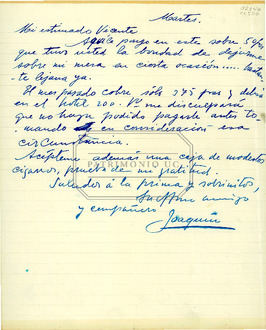 Martes.
Mi estimado Vicente
Aquí le pongo en este sobre 50 frs
que tuvo usted la bondad de dejarme
sobre mi mesa en cierta ocasión.... bastan-
te lejana ya.
El mes pasado cobré 375 frs y debía
en el hotel 200. V. me disculpará
que no haya podido pagarle antes to-
mando en consideración esa
circunstancia.
Acépteme además una caja de modestos
cigarros, prueba de mi gratitud.
Saludos á la prima y sobrinitos,
Su affmo amigo
y compañero
Joaquín
PATRIMONIO UC